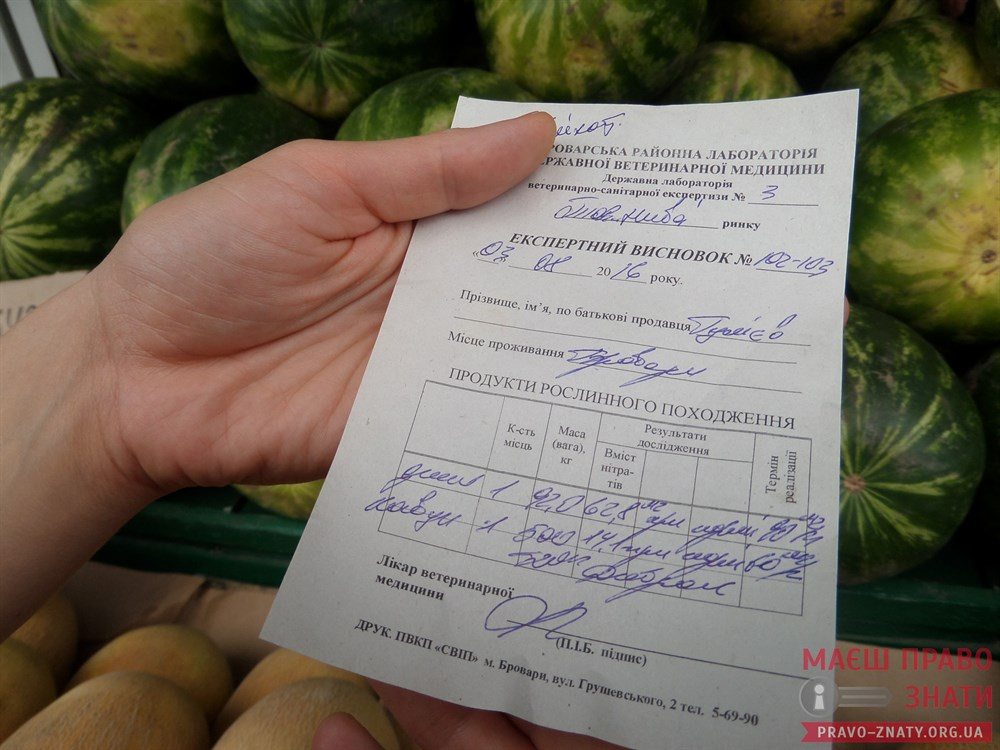 БРОВАРСЬКА РАЙОННА ЛАБОРАТОРІЯ
ДЕРЖАВНОЇ ВЕТЕРИНАРНОЇ МЕДИЦИНИ
Державна лабораторія
ветеринарно-санітарної експертизи № 3
ринку
ЕКСПЕРТНИЙ ВИСНОВОК № 102-103
«03» 08 2016 року.
Прізвище, ім'я, по батькові продавця
Місце проживання Бровари
ПРОДУКТИ РОСЛИННОГО ПОХОДЖЕННЯ
К-сть місць
Маса (вага), кг
Результати дослідження
Вміст нітра-тів
Термін реалізації
диня 1 92,0 62,8
кавун 1 500 14,1
Лікар ветеринарної
медицини
(П.І.Б. підпис)
ДРУК. ПВКП «СВІП» м. Бровари, вул. Грушевського, 2 тел. 5-69-90
МАЄШ ПРАВО
ЗНАТИ
PRAVO-ZNATY.ORG.UA